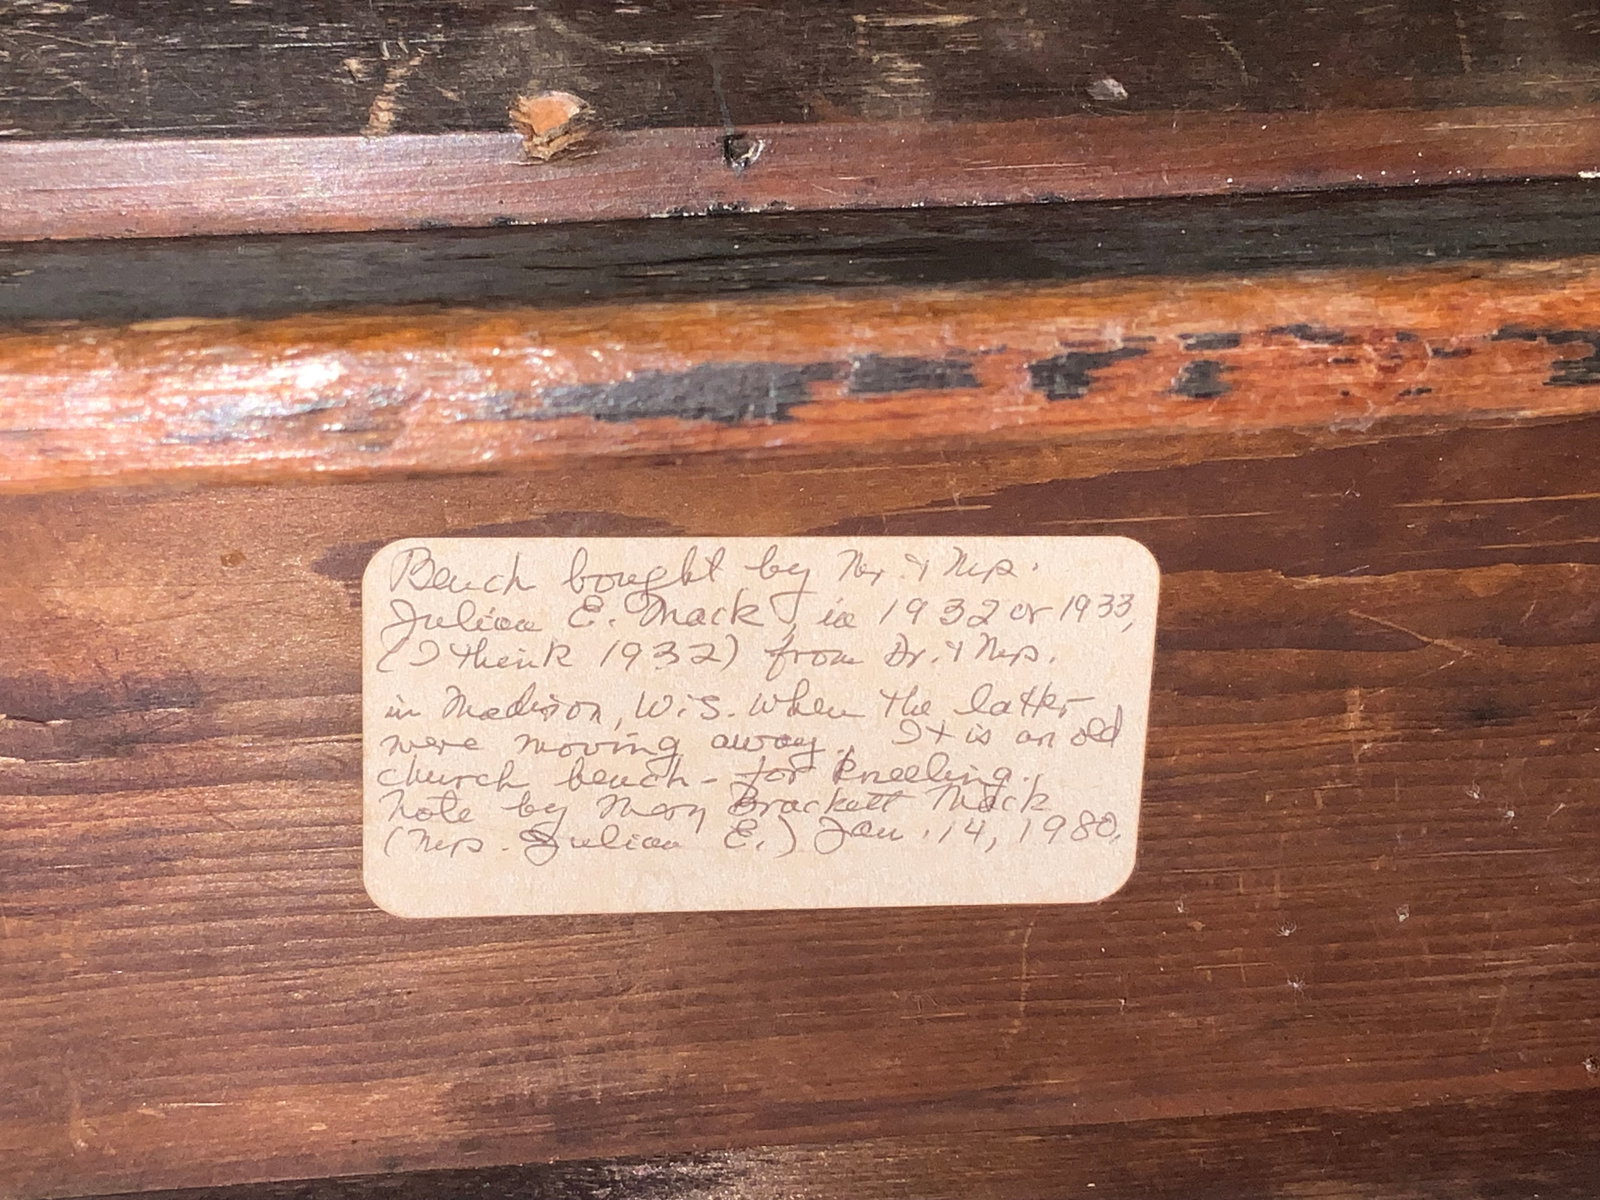 Bench bought by Mr. & Mrs.
Julian E. Mack, in 1932 or 1933,
(I think 1932) from Dr. & Mrs.
in Madison, Wis. when the latter
were moving away. It is an old
church bench - for kneeling.
Note by Mary Brackett Mack
(Mrs. Julian E.) Jan. 14, 1980.